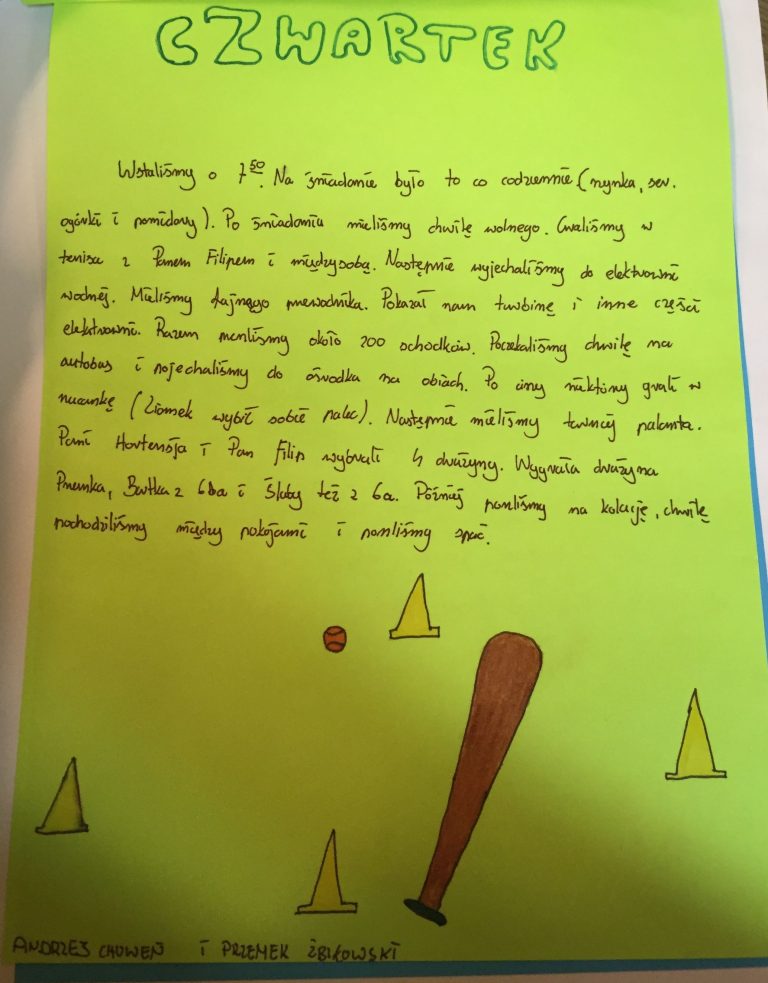 CZWARTEK
Wstaliśmy o 7⁵⁰. Na śniadanie było to co codziennie (szynka, ser,
ogórki i pomidory). Po śniadaniu mieliśmy chwilę wolnego. Graliśmy w
tenisa z Panem Filipem i między sobą. Następnie wyjechaliśmy do elektrowni
wodnej. Mieliśmy fajnego przewodnika. Pokazał nam turbinę i inne części
elektrowni. Razem przeszliśmy około 200 schodków. Poczekaliśmy chwilę na
autobus i pojechaliśmy do ośrodka na obiad. Po niektórzy grali w
(Ziomek wybił sobie palec). Następnie mieliśmy turniej palanta.
Pani Hortensja i Pan Filip wybrali 4 drużyny. Wygrała drużyna
Przemka, Bartka z 6ba i Śluby też z 6a. Później poszliśmy na kolację, chwilę
pochodziliśmy między pokojami i poszliśmy spać.
ANDRZEJ I PRZEMEK ŻBIKOWSKI